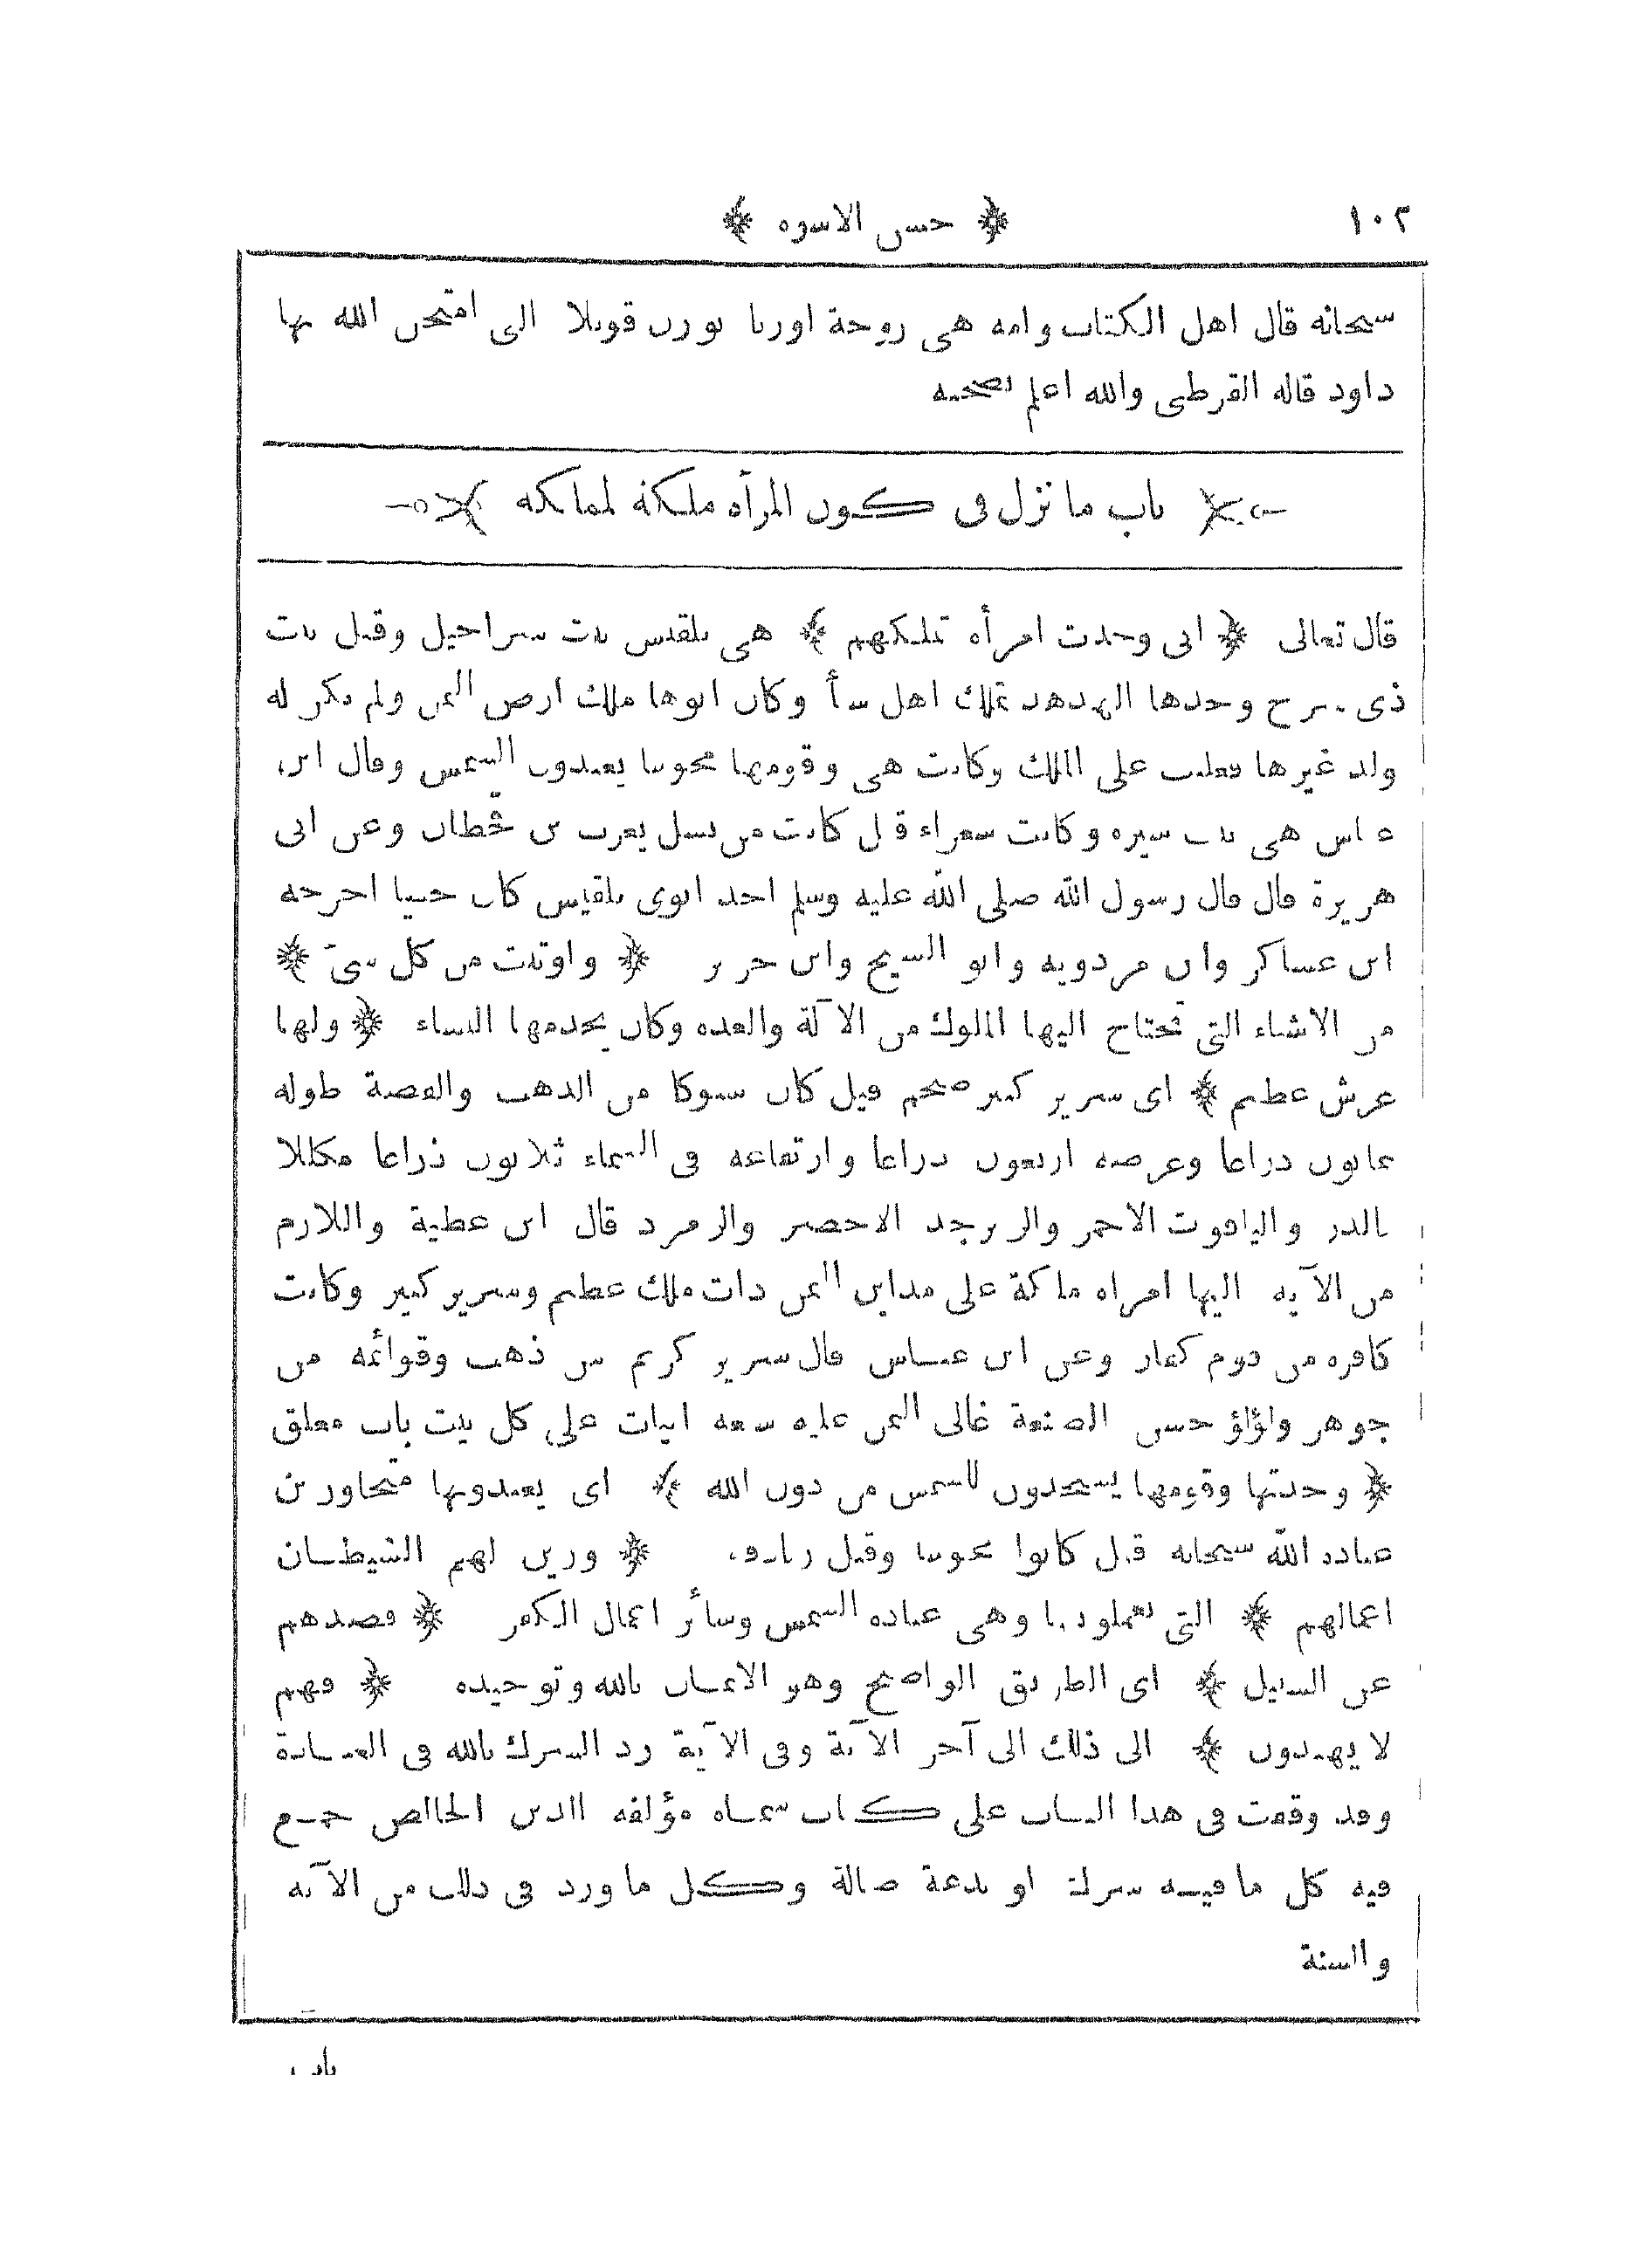 ١٠٢ ﴿ حسن الاسوة ﴾
سبحانه قال اهل الكتاب وامه هى زوجة اوريا بورن قويلا التى امتحن الله بها
داود قاله القرطبى والله اعلم بصحته
باب ما نزل فى كون المرأة ملكة لمملكة
قال تعالى ﴿ انى وجدت امرأة تملكهم ﴾ هى بلقيس بنت سراحيل وقيل بنت
ذى سرح وجدها الهدهد تملك اهل سبأ وكان ابوها ملك ارض اليمن ولم يكن له
ولد غيرها فغلبت على الملك وكانت هى وقومها مجوسا يعبدون الشمس وقال ابن
عباس هى بنت سيره وكانت شعراء قيل كانت من نسل يعرب بن قحطان وعن ابى
هريرة قال قال رسول الله صلى الله عليه وسلم احد ابوى بلقيس كان جنيا اخرجه
ابن عساكر وابن مردويه وابو الشيخ وابن جرير ﴿ واوتيت من كل شئ ﴾
من الاشياء التى تحتاج اليها الملوك من الآلة والعدة وكان يخدمها النساء ﴿ ولها
عرش عظيم ﴾ اى سرير كبير ضخم قيل كان مسبوكا من الذهب والفضة طوله
ثمانون ذراعا وعرضه اربعون ذراعا وارتفاعه فى السماء ثلاثون ذراعا مكللا
بالدر والياقوت الاحمر والزبرجد الاخضر والزمرد قال ابن عطية واللازم
من الآية انها امرأة مالكة على مداين اليمن ذات ملك عظيم وسرير كبير وكانت
كافرة من قوم كفار وعن ابن عباس قال سرير كريم من ذهب وقوائمه من
جوهر ولؤلؤ حسن الصنعة غالى الثمن عليه سبعة ابيات على كل بيت باب مغلق
﴿ وجدتها وقومها يسجدون للشمس من دون الله ﴾ اى يعبدونها متجاوزين
عبادة الله سبحانه قيل كانوا مجوسا وقيل زنادقة ﴿ وزين لهم الشيطان
اعمالهم ﴾ التى يعملونها وهى عبادة الشمس وسائر اعمال الكفر ﴿ فصدهم
عن السبيل ﴾ اى الطريق الواضح وهو الايمان بالله وتوحيده ﴿ فهم
لا يهتدون ﴾ الى ذلك الى آخر الآية وفى الآية رد الشرك بالله فى العبادة
وقد وقفت فى هذا الباب على كتاب سماه مؤلفه الدين الخالص جمع
فيه كل ما فيه شرك او بدعة ضالة وكل ما ورد فى ذلك من الآية
والسنة
باب